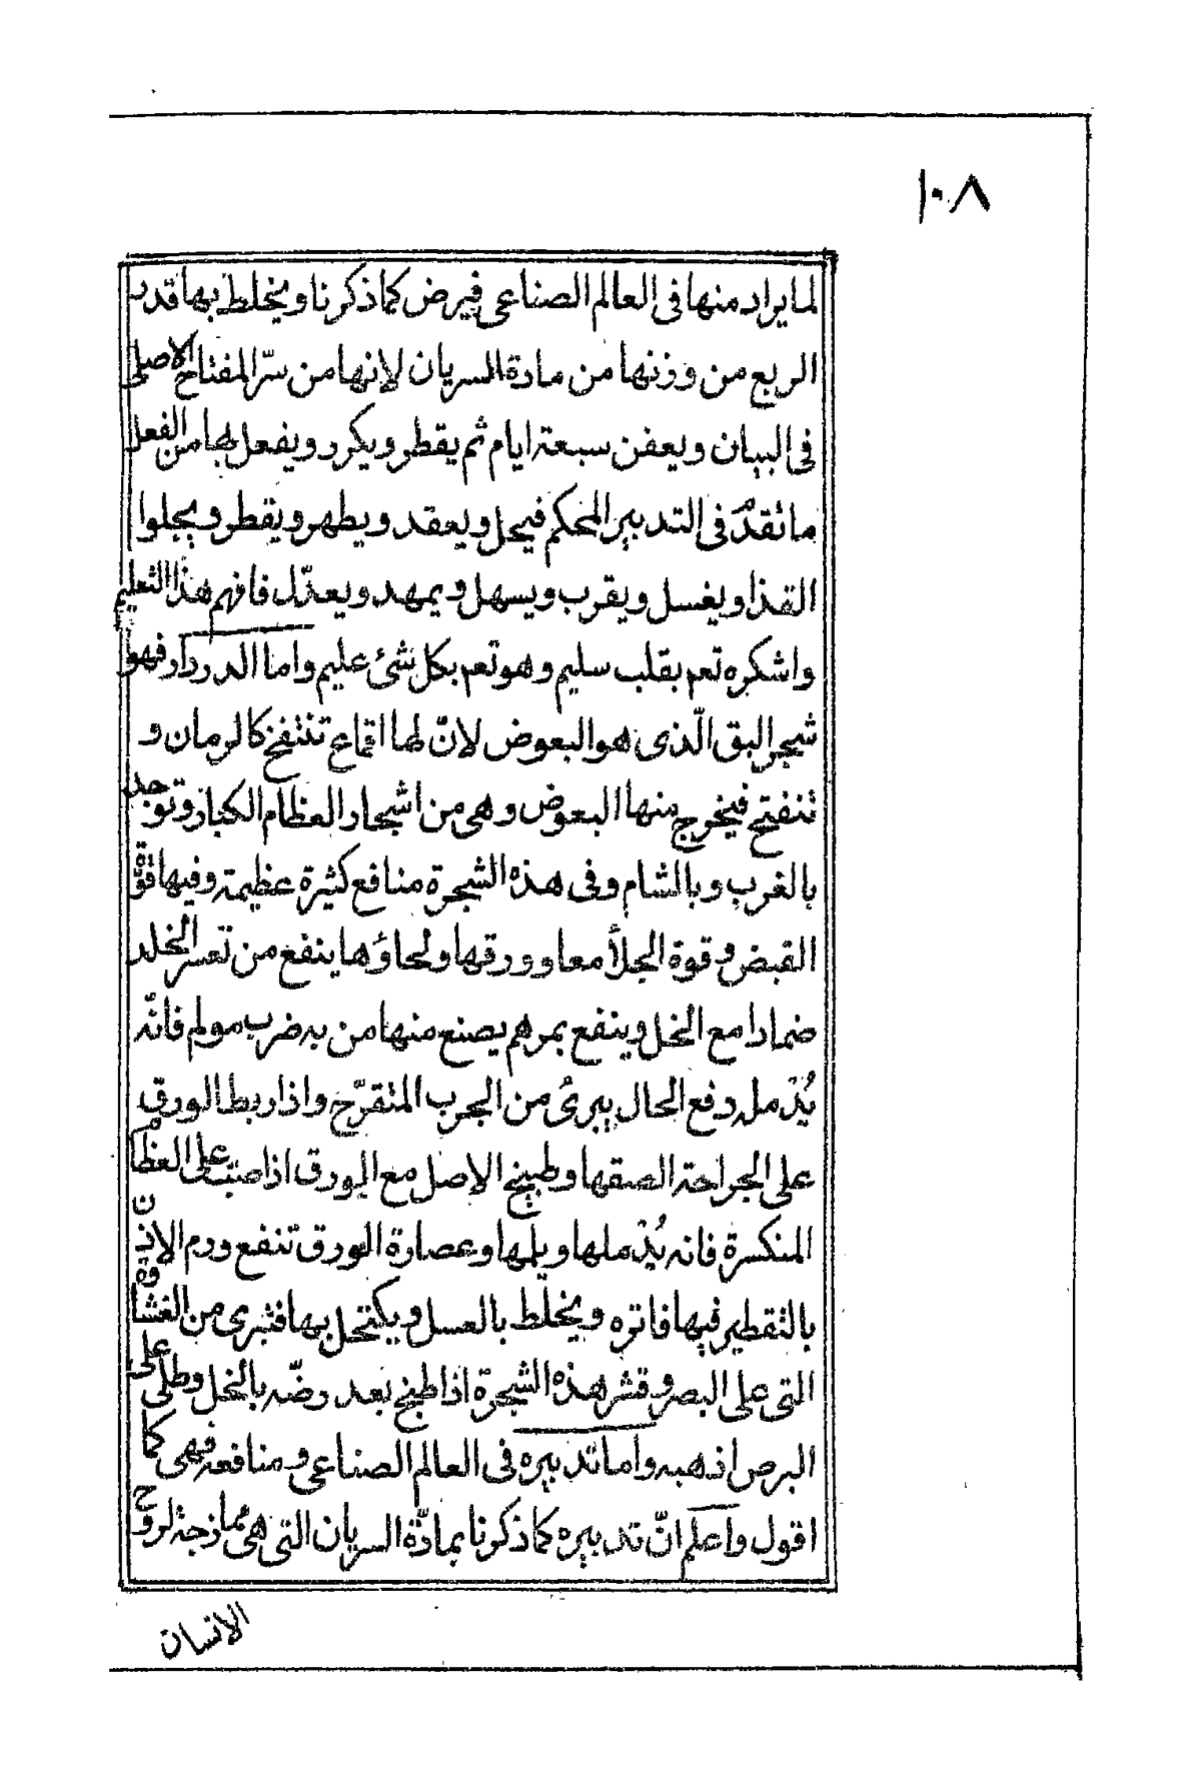 ١٠٨
لما يراد منها فى العالم الصناعى فيرض كما ذكرنا ويخلط بها قدر
الربع من وزنها من مادة السريان لانها من سرّ المفتاح الاصلى
فى البيان ويعفن سبعة ايام ثم يقطر ويكرر ويفعل بها من الفعل
ما تقدم فى التدبير المحكم فيحل ويعقد ويطهر ويقطر ويجلوا
القذا ويغسل ويقرب ويسهل ويمهد ويعدّل فافهم هذا التعليم
واشكره تعم بقلب سليم وهو تعم بكل شئ عليم واما الدردار فهو
شجر البق الّذى هو البعوض لانّ لها اقماع تنتفخ كالرمان و
تنفتح فيخرج منها البعوض وهى من اشجار العظام الكبار وتوجد
بالغرب وبالشام وفى هذه الشجرة منافع كثيرة عظيمة وفيها قوّة
القبض وقوة الجلأ معا وورقها ولحاؤها ينفع من تعسر الخلد
ضمادا مع الخل وينفع بمرهم يصنع منها من به ضرب مولم فانّه
يُدْمله دفع الحال يبرئ من الجرب المتقرّح واذا ربط الورق
على الجراحة الصقها وطبيخ الاصل مع الورق اذا صبّ على العظام
المنكسرة فانه يُدْملها ويلمها وعصارة الورق تنفع ورم الاذن
بالتقطير فيها فاتره ويخلّط بالعسل ويكتحل بها فتبرى من الغشاوة
التى على البصر وقشر هذه الشجرة اذا طبخ بعد رضّه بالخل وطلى على
البرص اذهبه واما تدبيره فى العالم الصناعى ومنافعه فهى كما
اقول واعلم انّ تدبيره كما ذكرنا بمادّة السريان التى هى ممازجة لروح
الانسان